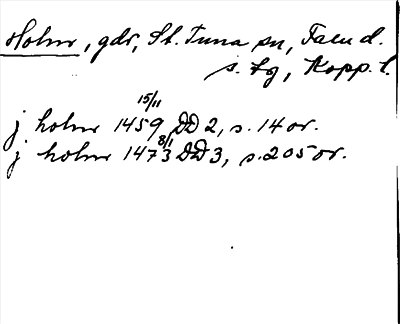 Holm, gdr, St. Tuna sn, Falu d.
s. tg, Kopp. l.
j holm 1459 15/11 DD 2, s. 14 or.
j holm 1473 8/1 DD 3, s. 205 or.